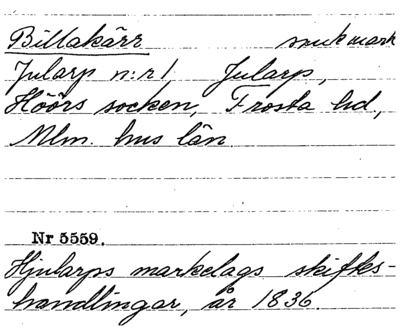 Billakärr smuk mark
Jularp n:r 1 Jularp,
Höörs socken, Frosta hd,
Mlm. hus län.
Nr 5559.
Hjularps markelags skifks-
handlingar, år 1836.